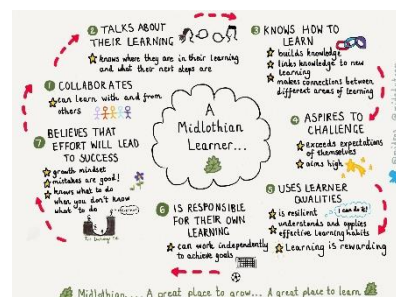 A
Midlothian
Learner...
1 COLLABORATES
can learn with and from
others
2 TALKS ABOUT
THEIR LEARNING
knows where they are in their learning
and what their next steps are
3 KNOWS HOW TO
LEARN
builds knowledge
links knowledge to new
learning
makes connections between
different areas of learning
4 ASPIRES TO
CHALLENGE
exceeds expectations
of themselves
aims high
5 USES LEARNER
QUALITIES
is resilient
I can do it!
understands and applies
effective learning habits
Learning is rewarding
6 IS RESPONSIBLE
FOR THEIR OWN
LEARNING
can work independently
to achieve goals
7
BELIEVES THAT
EFFORT WILL LEAD
TO SUCCESS
growth mindset
mistakes are good!
knows what to do
when you don't know
what to do
Midlothian.... A great place to grow... A great place to learn